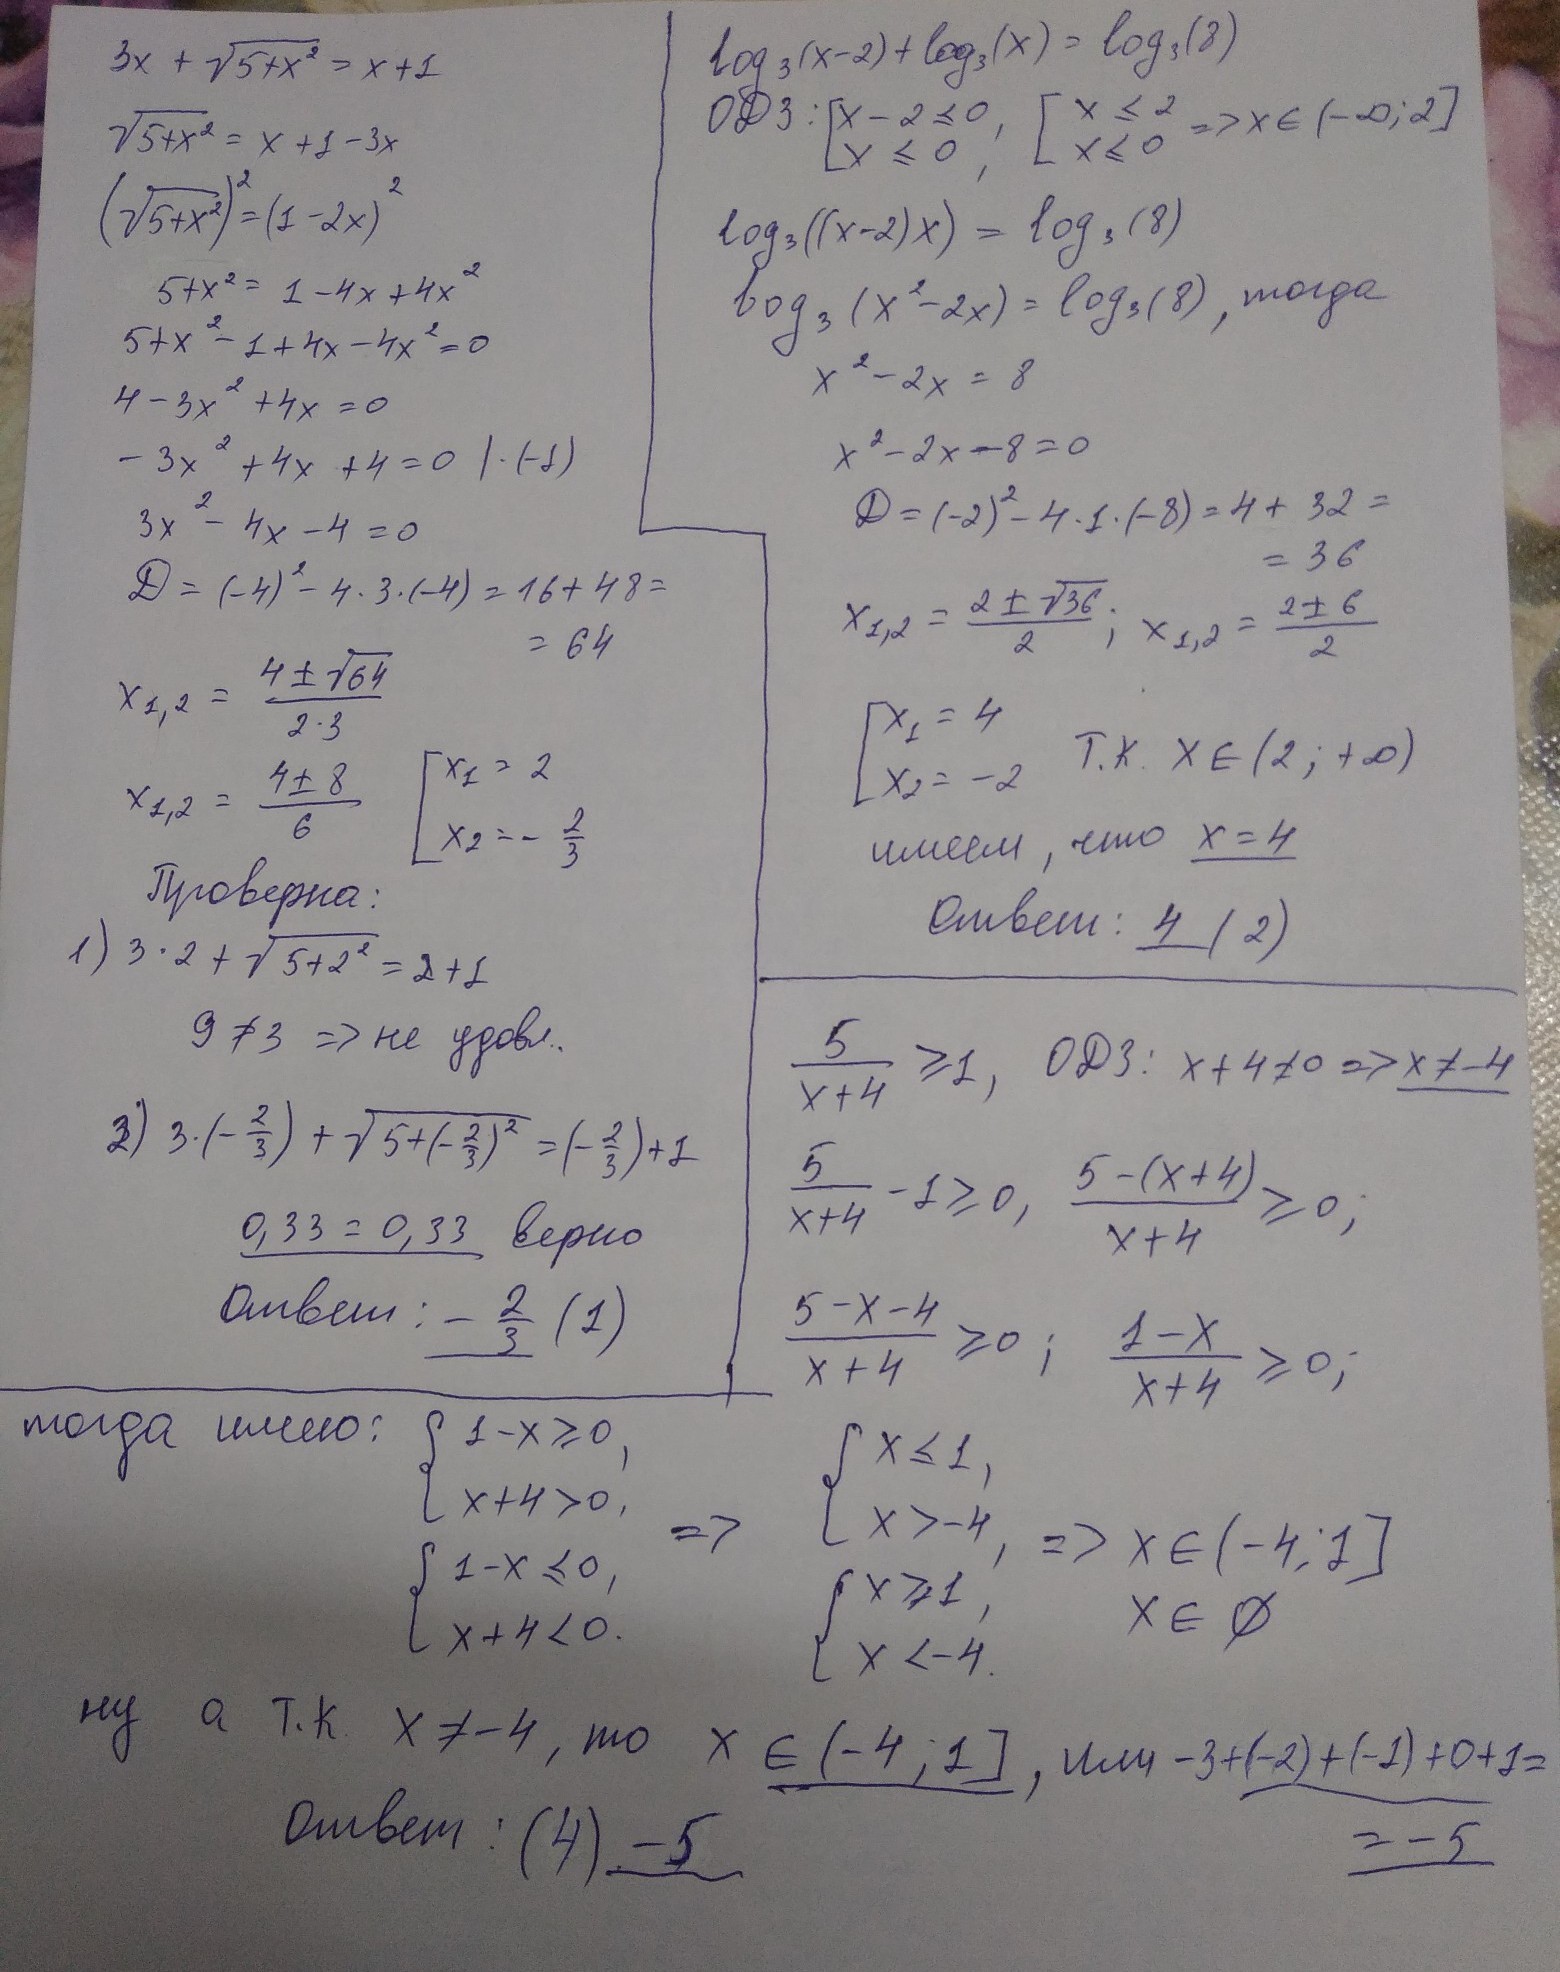 3x + √(5+x²) = x+1
√(5+x²) = x+1-3x
(√(5+x²))² = (1-2x)²
5+x² = 1-4x+4x²
5+x²-1+4x-4x²=0
4-3x²+4x=0
-3x²+4x+4=0 |·(-1)
3x²-4x-4=0
D = (-4)²-4·3·(-4) = 16+48=
= 64
x₁,₂ = (4±√64)/(2·3)
x₁,₂ = (4±8)/6 [x₁ = 2
x₂ = -2/3
Проверка:
1) 3·2+√(5+2²) = 2+1
9≠3 => не удовл.
2) 3·(-2/3)+√(5+(-2/3)²) = (-2/3)+1
0,33 = 0,33 верно
Ответ: -2/3 (1)
log₃(x-2)+log₃(x) = log₃(8)
ОДЗ: [x-2≤0, [x≤2 => x∈(-∞;2]
x≤0, x≤0
log₃((x-2)x) = log₃(8)
log₃(x²-2x) = log₃(8), тогда
x²-2x = 8
x²-2x-8=0
D = (-2)²-4·1·(-8) = 4+32 =
= 36
x₁,₂ = (2±√36)/2; x₁,₂ = (2±6)/2
[x₁ = 4
x₂ = -2 Т.К. x∈(2;+∞)
имеем, что x=4
Ответ: 4 (2)
5/(x+4) ⩾1, ОДЗ: x+4≠0 => x≠-4
5/(x+4) -1⩾0, (5-(x+4))/(x+4) ⩾0;
(5-x-4)/(x+4) ⩾0; (1-x)/(x+4) ⩾0;
тогда имею: {1-x⩾0, {x≤1,
x+4>0. => x>-4, => x∈(-4;1]
{1-x≤0, {x⩾1, x∈∅
x+4<0. x<-4.
ну а Т.К. x≠-4, то x∈(-4;1], или -3+(-2)+(-1)+0+1=
= -5
Ответ: (4) -5